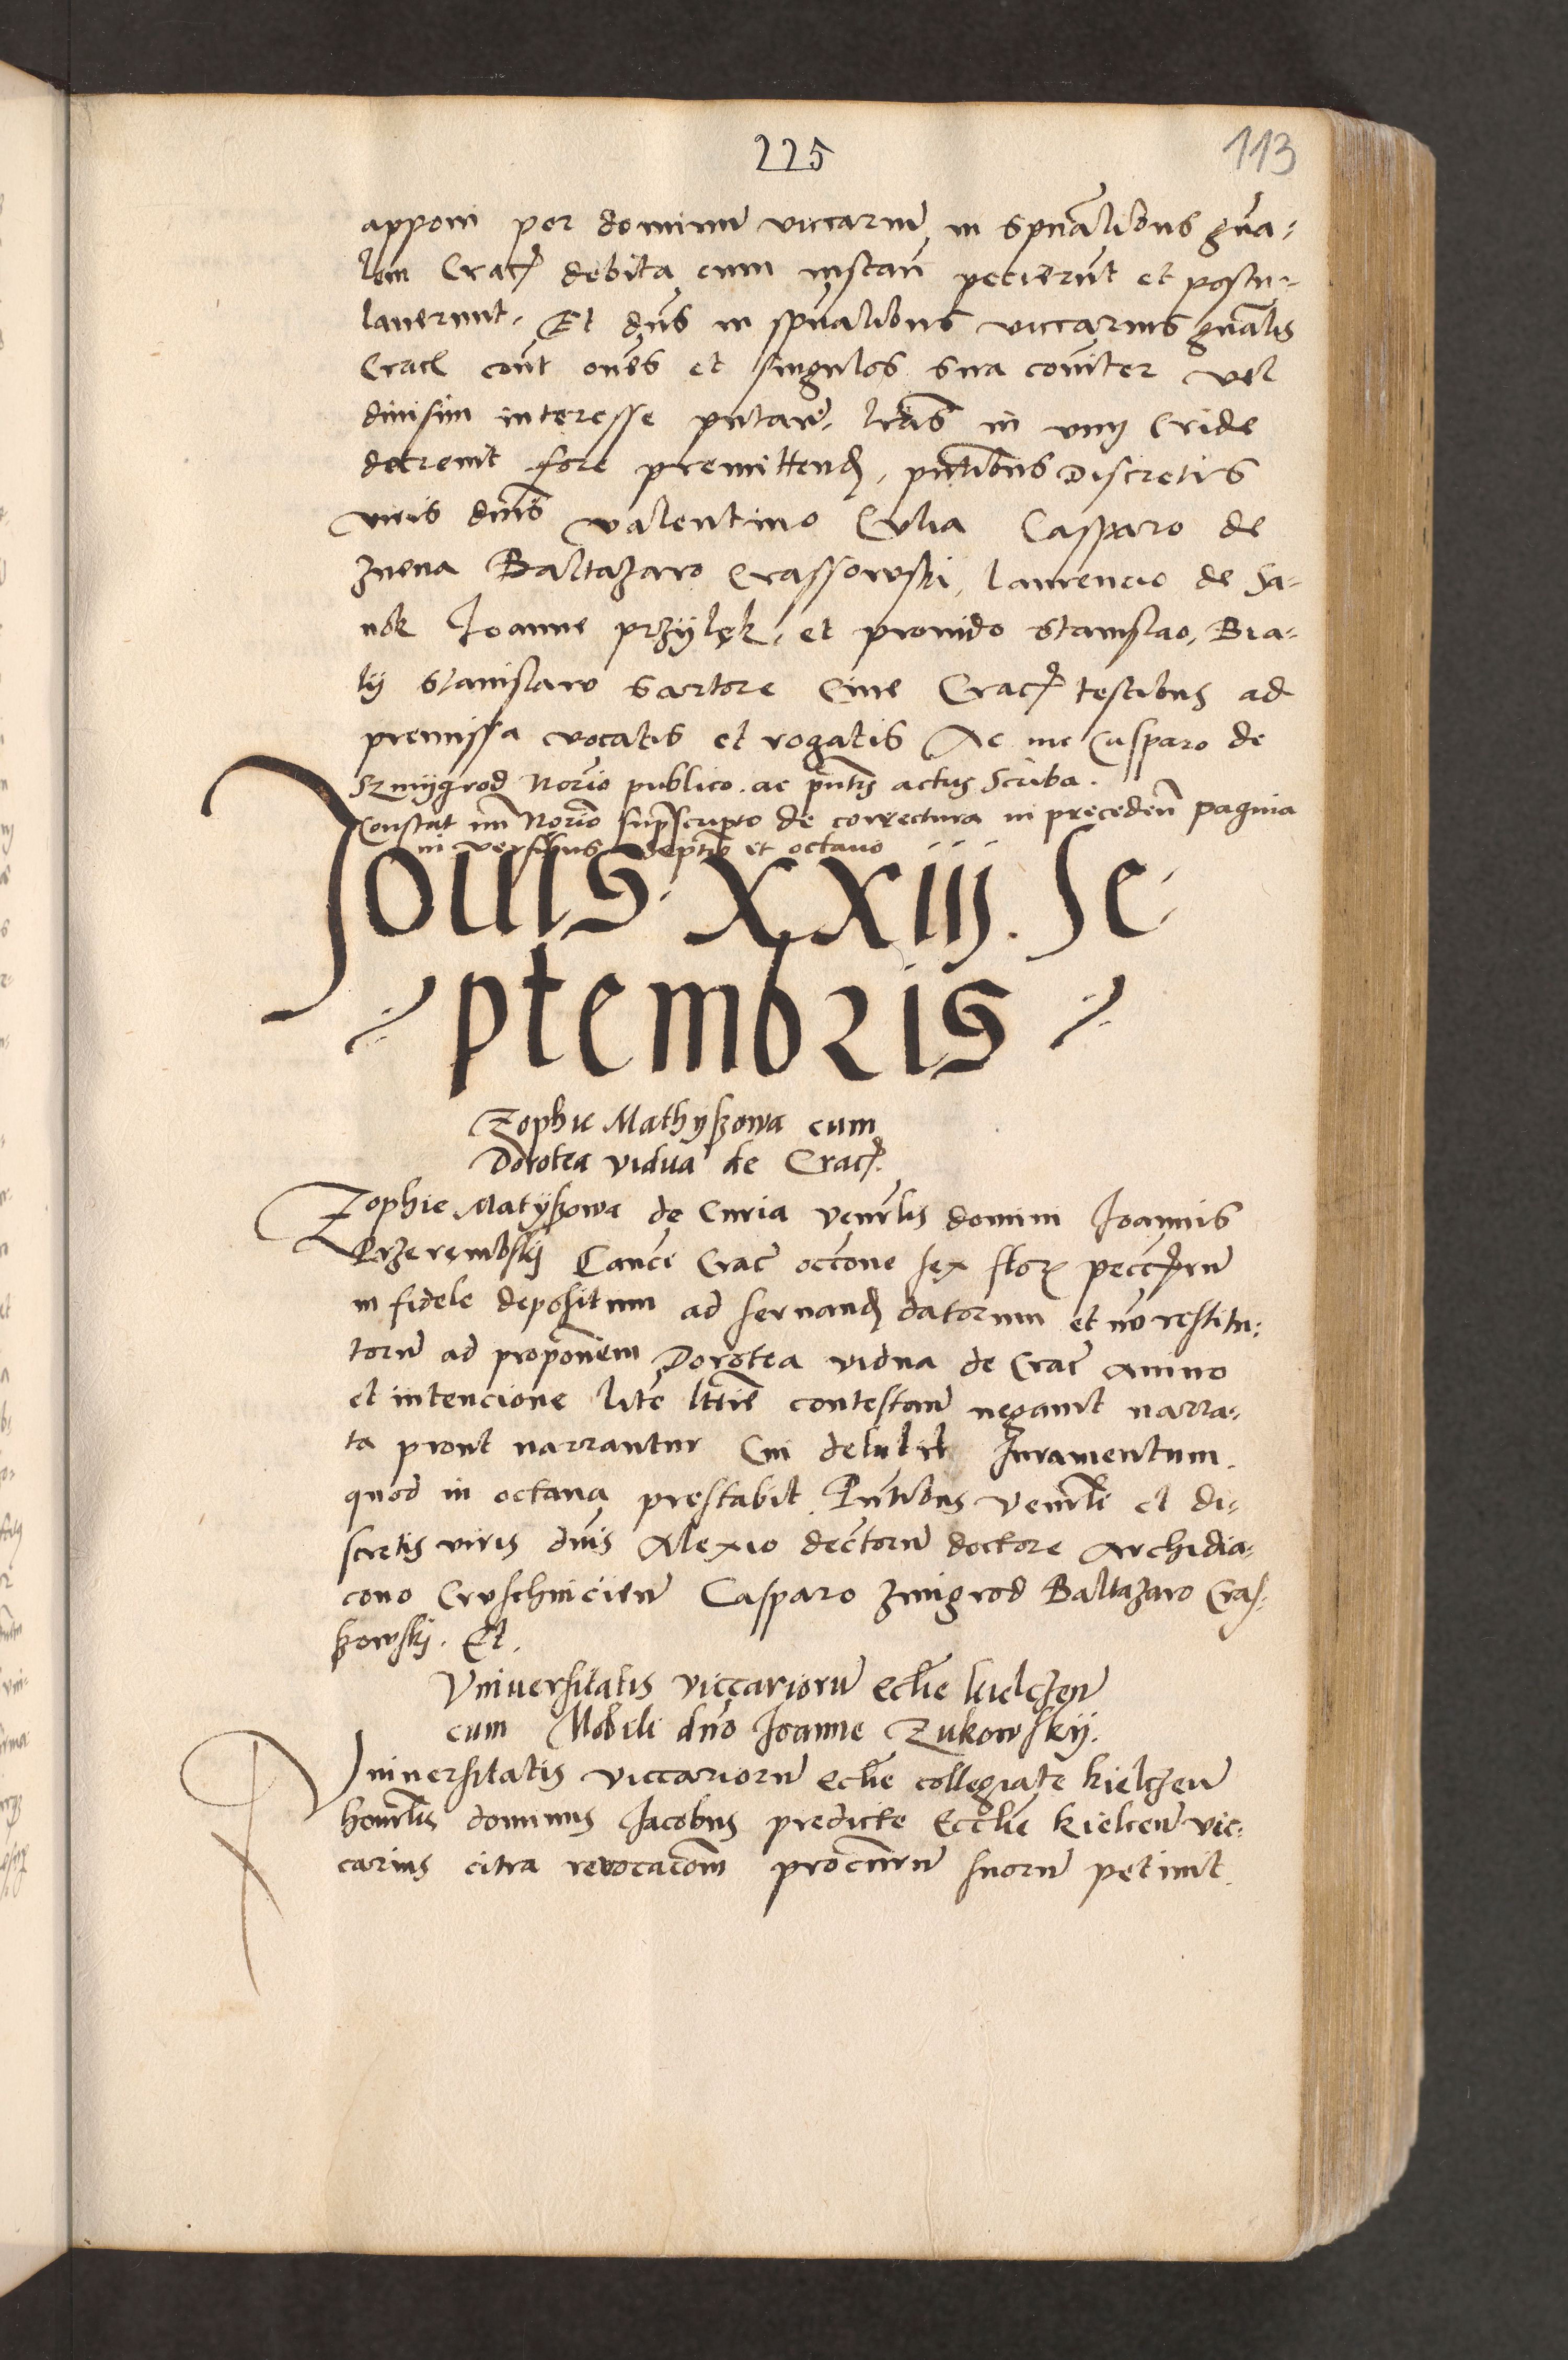 225
113
apponi per dominum viccarium in spualibus gna-
lem Crac debita cum instan petierunt et postu-
laverunt. Et dns in spualibus viccarius gnalis
Crac cont omes et singulos sua coniter vel
divisim interesse putan. lras in vim Cride
decrevit fore premittend, pntibus Discretis
viris dnis Valentino Culia Casparo de
Znena Baltazaro Crassowski, laurencio de Sa-
nok Joanne przylek, et provido Stanislao, Bia-
ly Stanislaw sartore Cive Crac testibus ad
premissa vocatis et rogatis Ac me Casparo de
Szmygrod Norio publico. ac pntis actus Scriba.
Constat im Norio suprascripto de correctura in preceden pagina
in versibus septio et octavo
Jovis. xxiij. Se-
ptembris
Zophie Mathyszowa cum
Dorotea vidua de Crac.
Zophie Matyszowa de Curia venrlis domini Joannis
Przerembskij Cance Crac occone sex flor pecc
in fidele depositum ad servand datorum et no restitu-
torum ad proponem Dorotea vidua de Crac animo
et intencione lite contestan negavit narra-
ta prout narrantur Cui detulit Juramentum.
quod in octava prestabit. Pntibus venrli et di-
scretis viris dnis Alexio dectorum doctore Archidia-
cono Cruschvicien Casparo Zmigrod Baltazaro Cras-
szowskj. Et.
Vniversitatis viccariorum eclie kielczen
cum Nobili dno Joanne Zukowskij.
Vniversitatis viccariorum eclie collegiate kielczen
honrlis dominus Jacobus predicte Ecclie kielcen vic-
carius citra revocacom procurum suorum petivit.